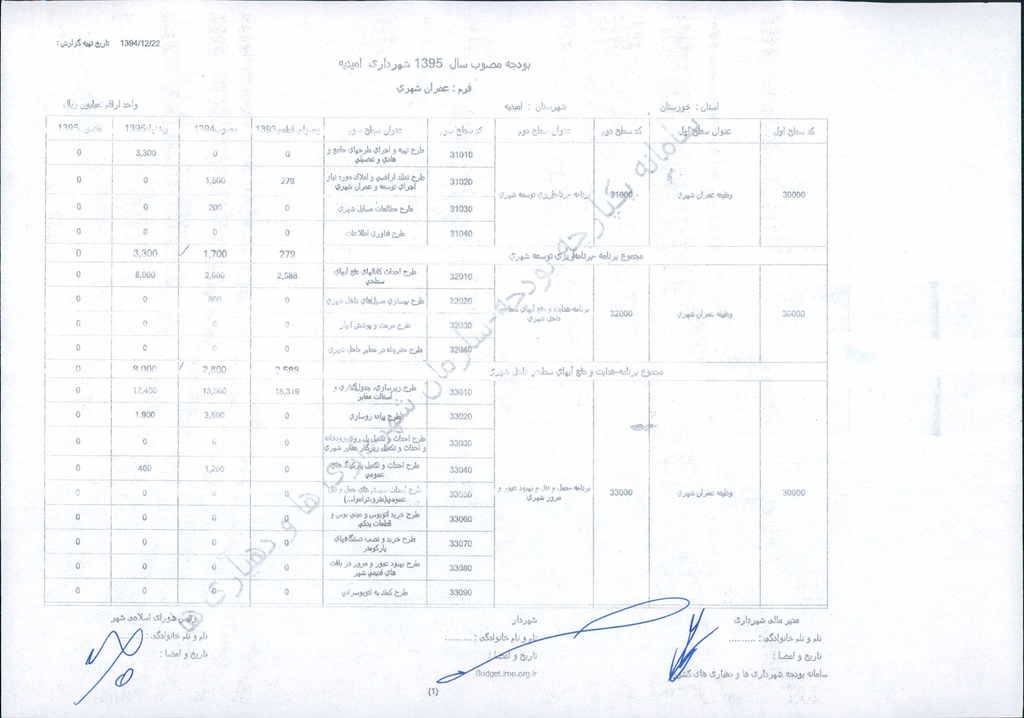 تاریخ تهیه گزارش : 1394/12/22
بودجه مصوب سال 1395 شهرداری امیدیه
فرم : عمران شهری
استان : خوزستان شهرستان : امیدیه واحد ارقام :میلیون ریال
کد سطح اول عنوان سطح اول کد سطح دوم عنوان سطح دوم کد سطح سوم عنوان سطح سوم مصوب1394
30000 وظیفه عمران شهری 31000 برنامه -برنامه‌ریزی توسعه شهری
31010 طرح تهیه و اجرای طرحهای جامع و هادی و تفصیلی 0 0 3,300 0
31020 طرح تملک اراضی و املاک مورد نیاز اجرای توسعه و عمران شهری 279 1,500 0 0
31030 طرح مطالعات مسایل شهری 0 200 0 0
31040 طرح فناوری اطلاعات 0 0 0 0
مجموع برنامه -برنامه‌ریزی توسعه شهری 279 1,700 3,300 0
30000 وظیفه عمران شهری 32000 برنامه-هدایت و دفع آبهای سطحی داخل شهری
32010 طرح احداث کانالهای دفع آبهای سطحی 2,588 0
32020 طرح بهسازی مسیل‌های داخل شهری 0 0 0
32030 طرح مرمت و پوشش انهار 0 0 0 0
32040 طرح متفرقه در معابر داخل شهری 0 0 0 0
مجموع برنامه-هدایت و دفع آبهای سطحی داخل شهری 2,588 0
30000 وظیفه عمران شهری 33000 برنامه-حمل و نقل و بهبود عبور و مرور شهری
33010 طرح زیرسازی، جدول‌گذاری و آسفالت معابر 0
33020 طرح پیاده روسازی 0 1,900 0
33030 طرح احداث و تکمیل پل روی رودخانه و احداث و تکمیل زیرگذر معابر شهری 0 0 0 0
33040 طرح احداث و تکمیل پارکینگ های عمومی 0 1,200 400 0
33050 طرح احداث سیستم های حمل و نقل عمومی(مترو،تراموا،...) 0 0 0 0
33060 طرح خرید اتوبوس و مینی بوس و قطعات یدکی 0 0 0 0
33070 طرح خرید و نصب دستگاههای پارکومتر 0 0 0 0
33080 طرح بهبود عبور و مرور در بافت های قدیمی شهر 0 0 0 0
33090 طرح کمک به اتوبوسرانی 0 0 0 0
سامانه یکپارچه بودجه-سازمان شهرداری ها و دهیاری ها
مدیر مالی شهرداری شهردار رئیس شورای اسلامی شهر
نام و نام خانوادگی : .......... نام و نام خانوادگی : .......... نام و نام خانوادگی :
تاریخ و امضا : تاریخ و امضا : تاریخ و امضا :
سامانه بودجه شهرداری ها و دهیاری های کشور Budget.imo.org.ir
(1)